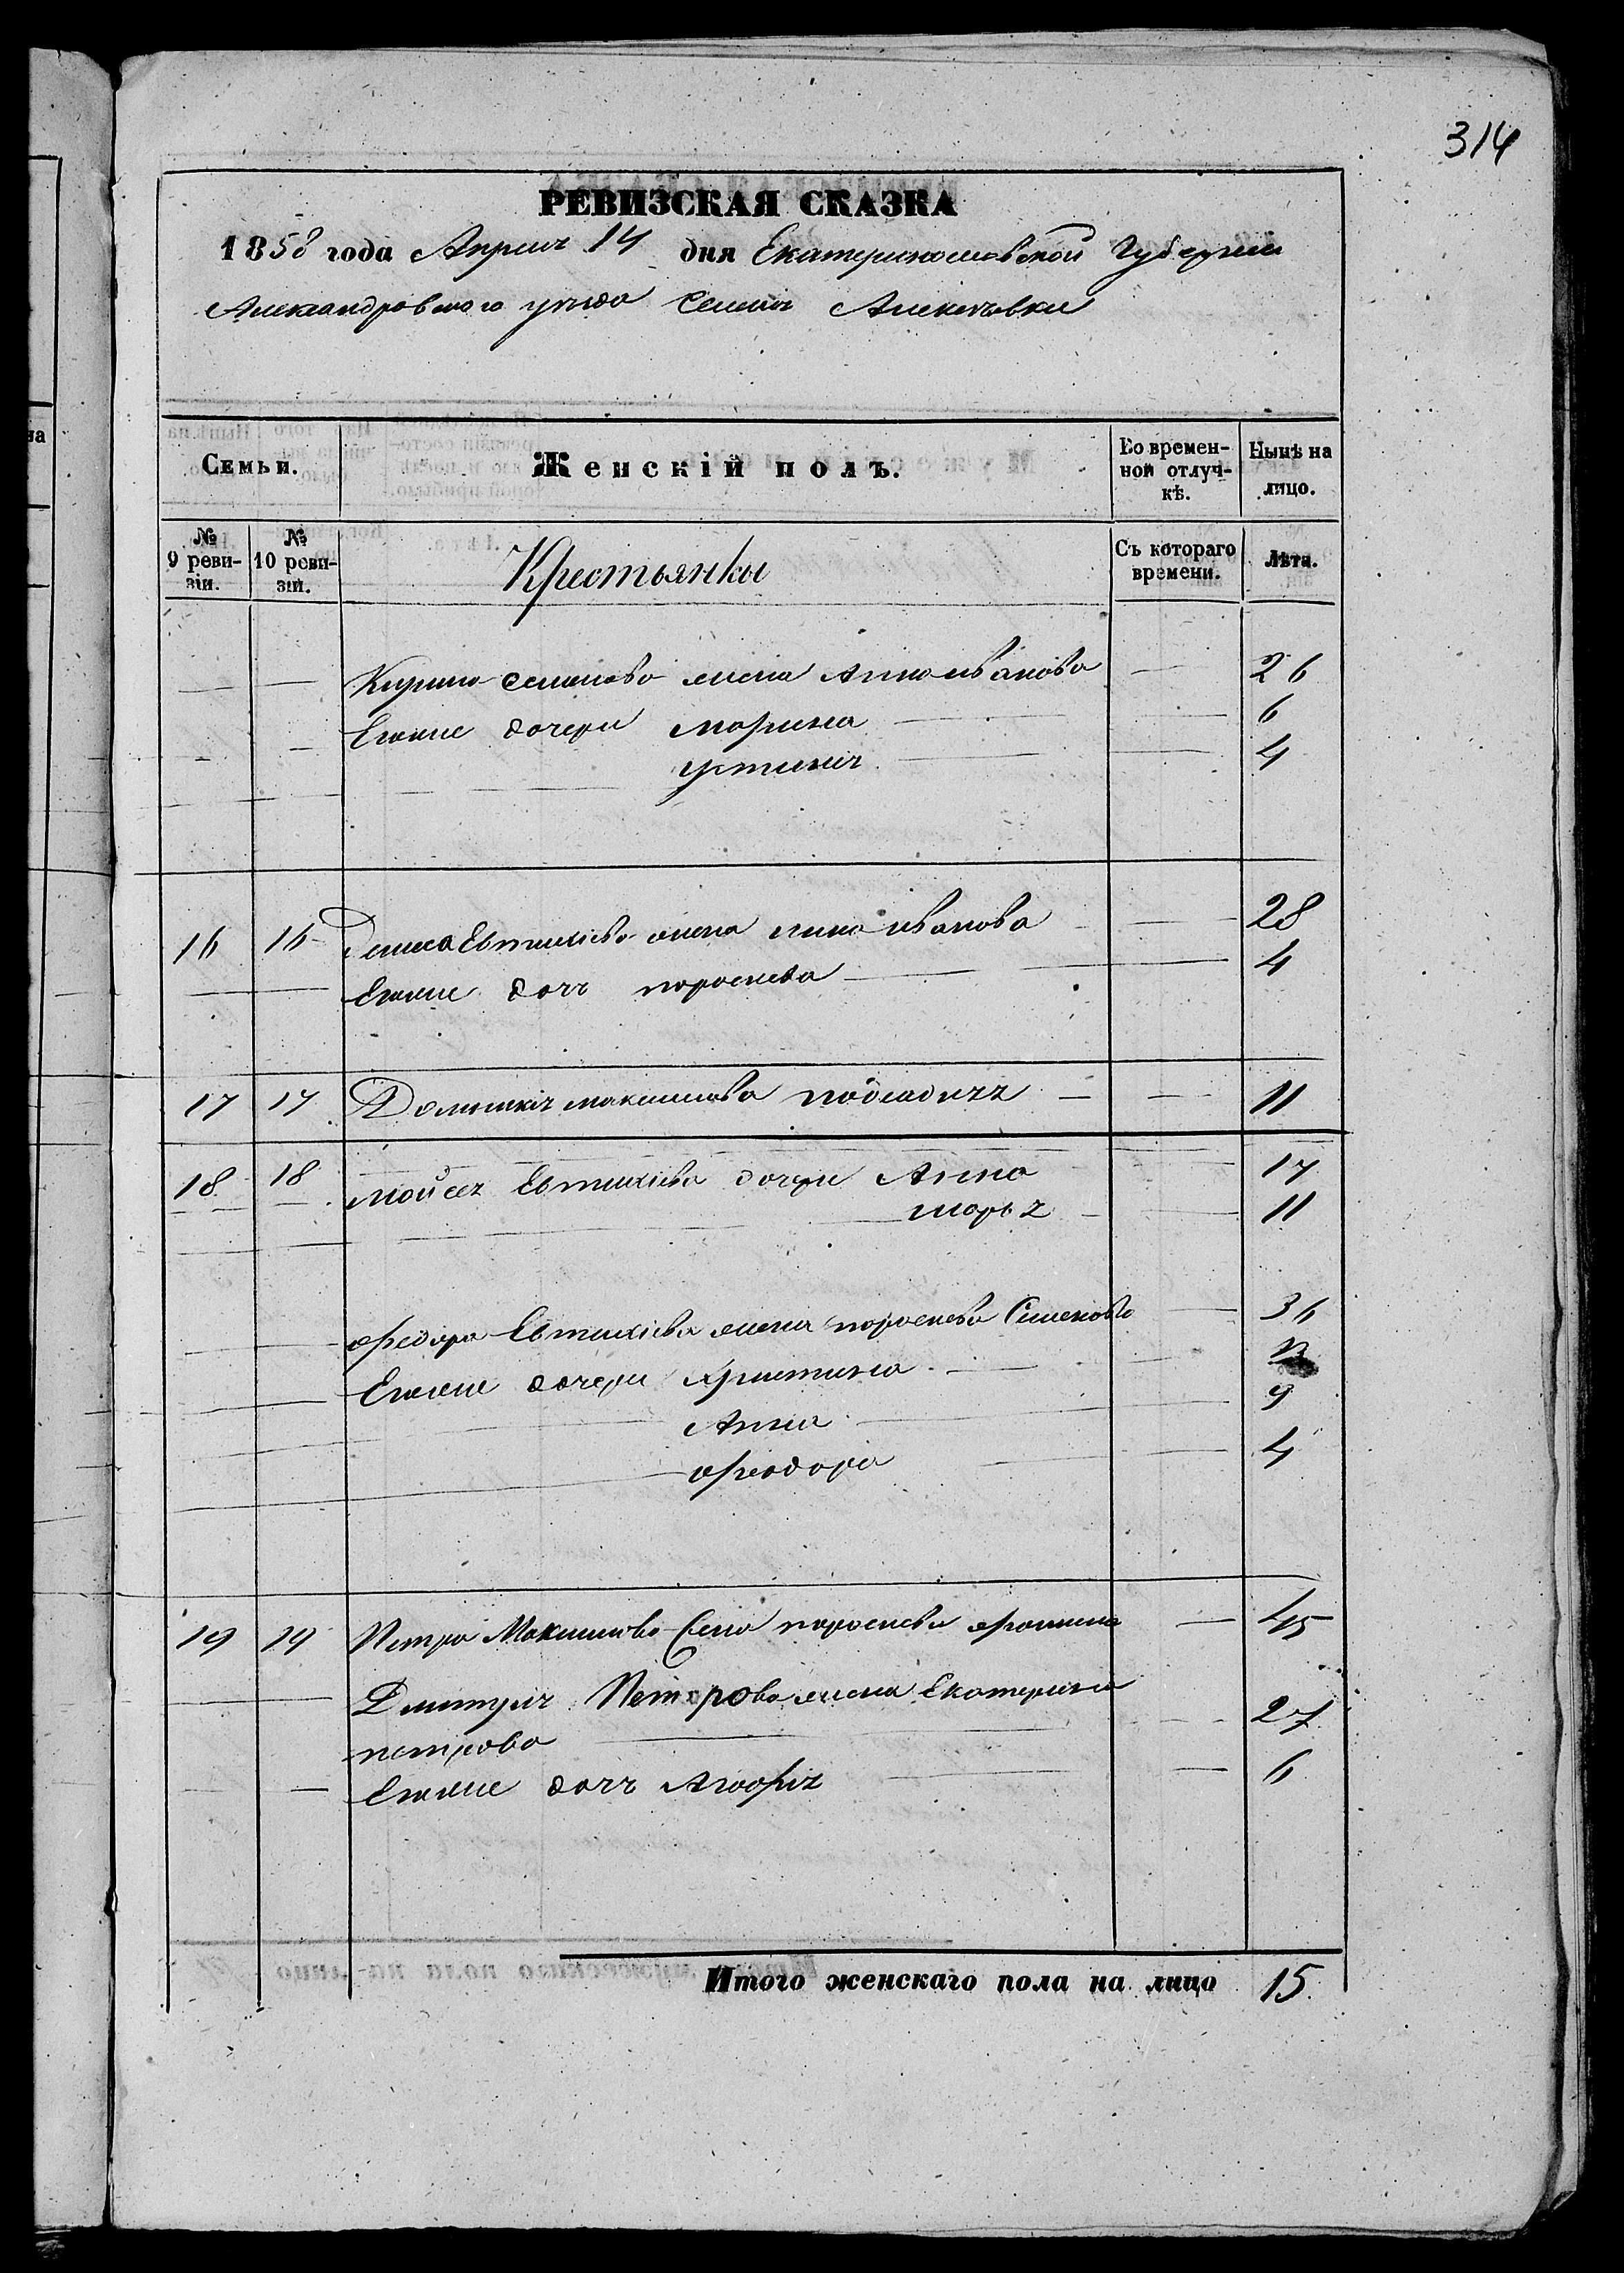 314
РЕВИЗСКАЯ СКАЗКА
1858 года Апреля 14 дня Екатеринославской Губернии
Александровского уезда Алексеевки
Семьи. Женскій полъ. Во времен-ной отлуч-кѣ. Нынѣ на лицо.
№ 9 реви-зіи. № 10 реви-зіи. Крестьянки Съ котораго времени. Лѣта.
Кирила Семенова жена Анна Иванова 26
Егоже дочери Марина 6
Устинія 4
16 16 Дениса Евтихіева жена Анна Иванова 28
Егоже дочь Пораскева 4
17 17 Домникія Максимова 11
18 18 Мойсея Евтихіева дочери Анна 17
Марья 11
Федора Евтихіева жена Пораскева Семенова 36
Егоже дочери Христина
Анна 9
Феодора 4
19 19 Петра Максимова жена Пораскева 45
Дмитрія Петрова жена Екатерина
Петрова 27
Егоже дочь 6
Итого женскаго пола на лицо 15.